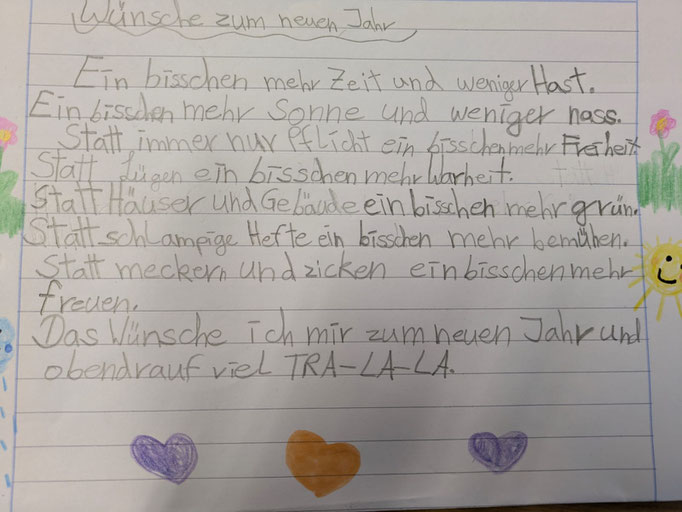 Wünsche zum neuen Jahr
Ein bisschen mehr Zeit und weniger Hast.
Ein bisschen mehr Sonne und weniger nass.
Statt immer nur Pflicht ein bisschen mehr Freiheit
Statt Lügen ein bisschen mehr Warheit.
Statt Häuser und Gebäude ein bisschen mehr grün.
Statt schlampige Hefte ein bisschen mehr bemühen.
Statt meckern und zicken ein bisschen mehr
freuen.
Das Wünsche ich mir zum neuen Jahr und
obendrauf viel TRA-LA-LA.